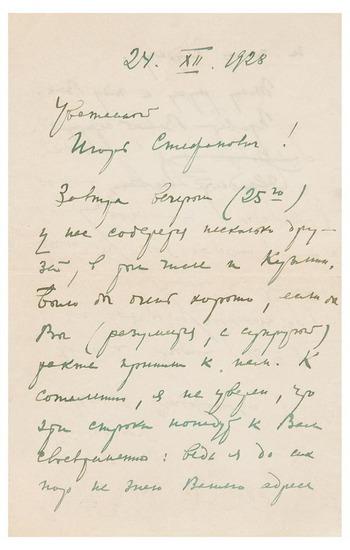 24. XII. 1928
Уважаемый
Игорь Стефанович!
Завтра вечером (25го)
у нас соберутся несколько дру-
зей, в том числе и Кузмин.
Было бы очень хорошо, если бы
Вы (разумеется, с супругой)
также пришли к нам. К
сожалению, я не уверен, что
эти строки попадут к Вам
своевременно: ведь я до сих
пор не знаю Вашего адреса